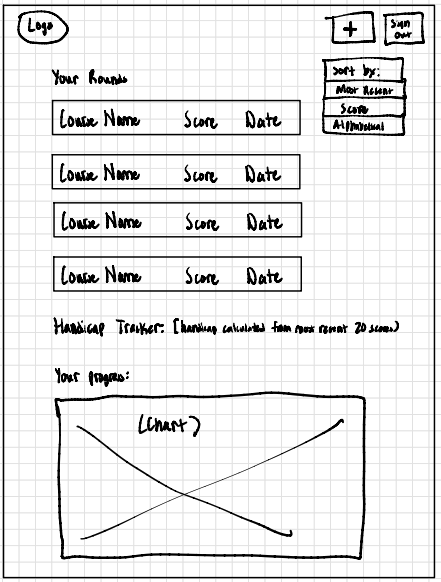 Logo
+
Sign Out
Your Rounds
Sort by:
Most Recent
Score
Alphabetical
Course Name Score Date
Course Name Score Date
Course Name Score Date
Course Name Score Date
Handicap Tracker: (handicap calculated from most recent 20 scores)
Your progress:
(Chart)